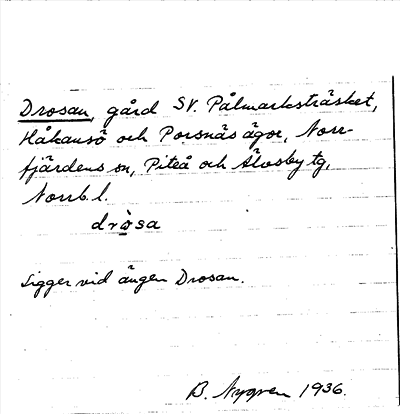 Drosan, gård SV. Pålmarksträsket,
Håkansö och Porsnäs ägor, Norr-
fjärdens sn, Piteå och Älvsby tg,
Norrb. l.
drò̤sa
Ligger vid ängen Drosan.
B. Nygren 1936.